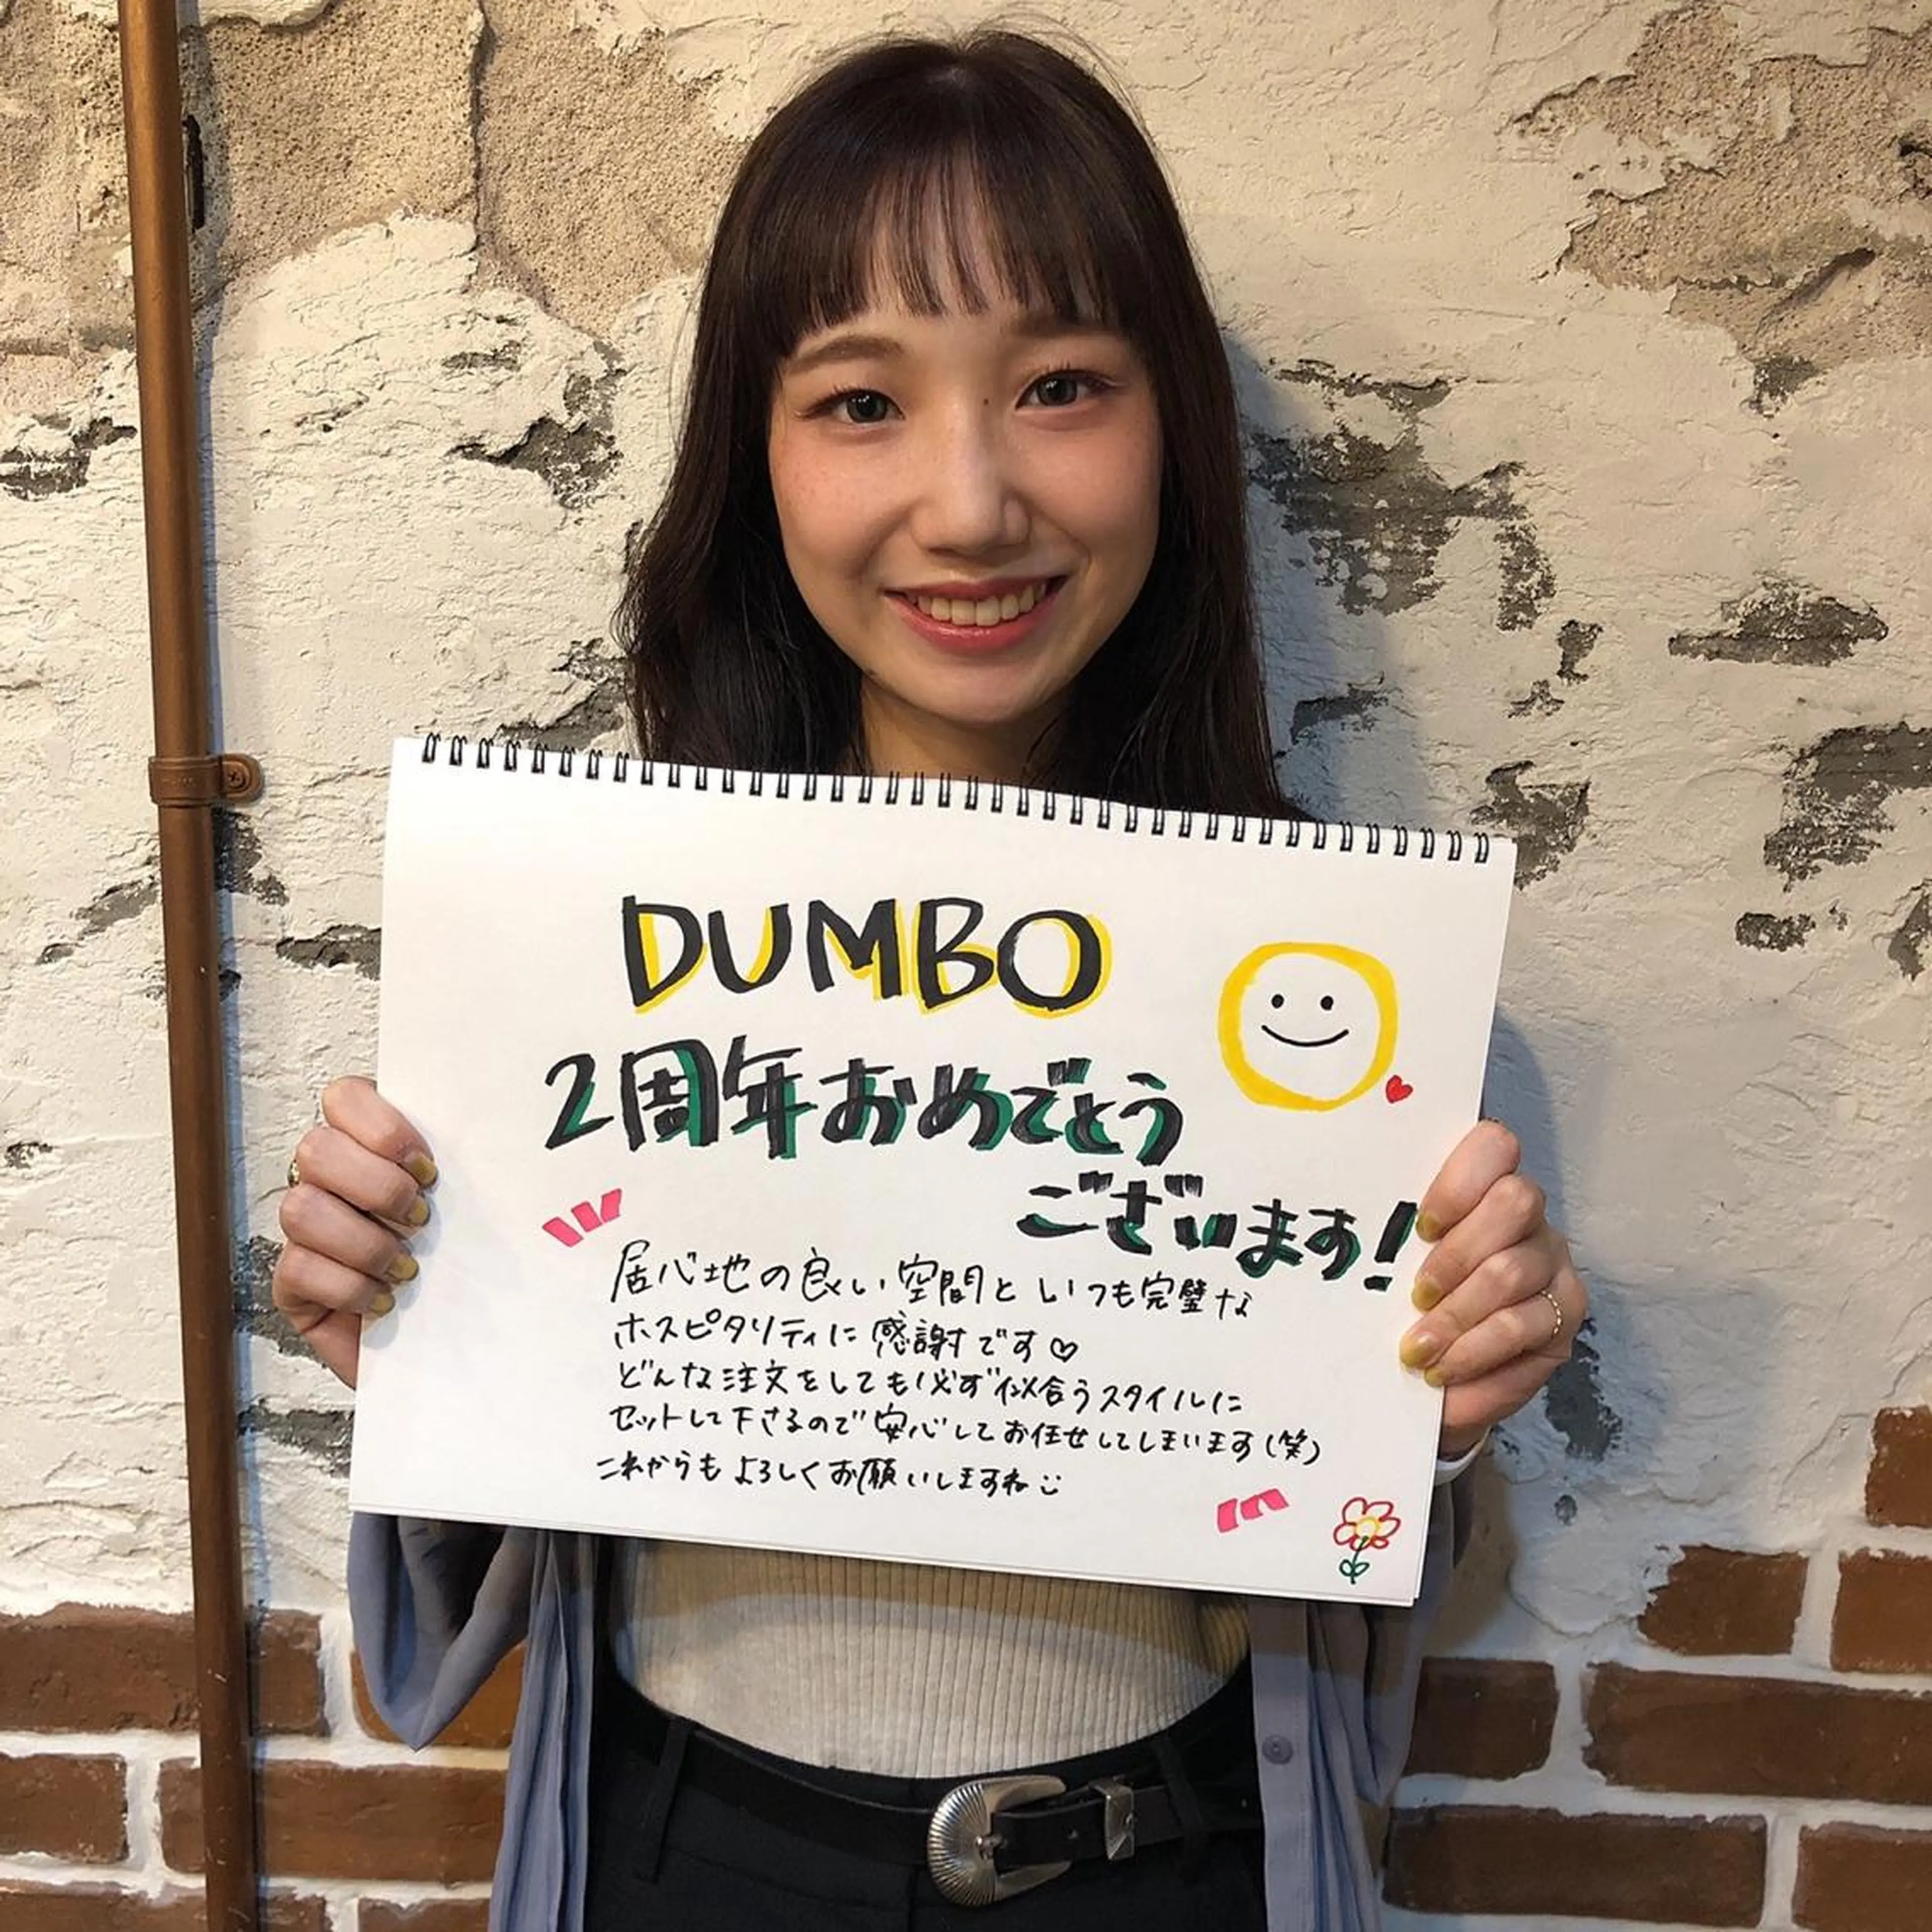 DUMBO
2周年おめでとう
ございます!
居心地の良い空間といつも完璧な
ホスピタリティに感謝です♡
どんな注文をしても必ず似合うスタイルに
セットして下さるので安心してお任せしてしまいます(笑)
これからもよろしくお願いしますね